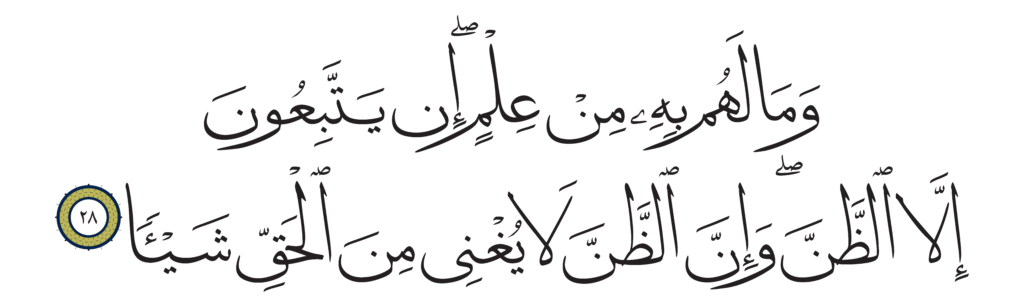 وَمَا لَهُم بِهِۦ مِنْ عِلْمٍ ۖ إِن يَتَّبِعُونَ
إِلَّا ٱلظَّنَّ ۖ وَإِنَّ ٱلظَّنَّ لَا يُغْنِى مِنَ ٱلْحَقِّ شَيْـًٔا ٢٨